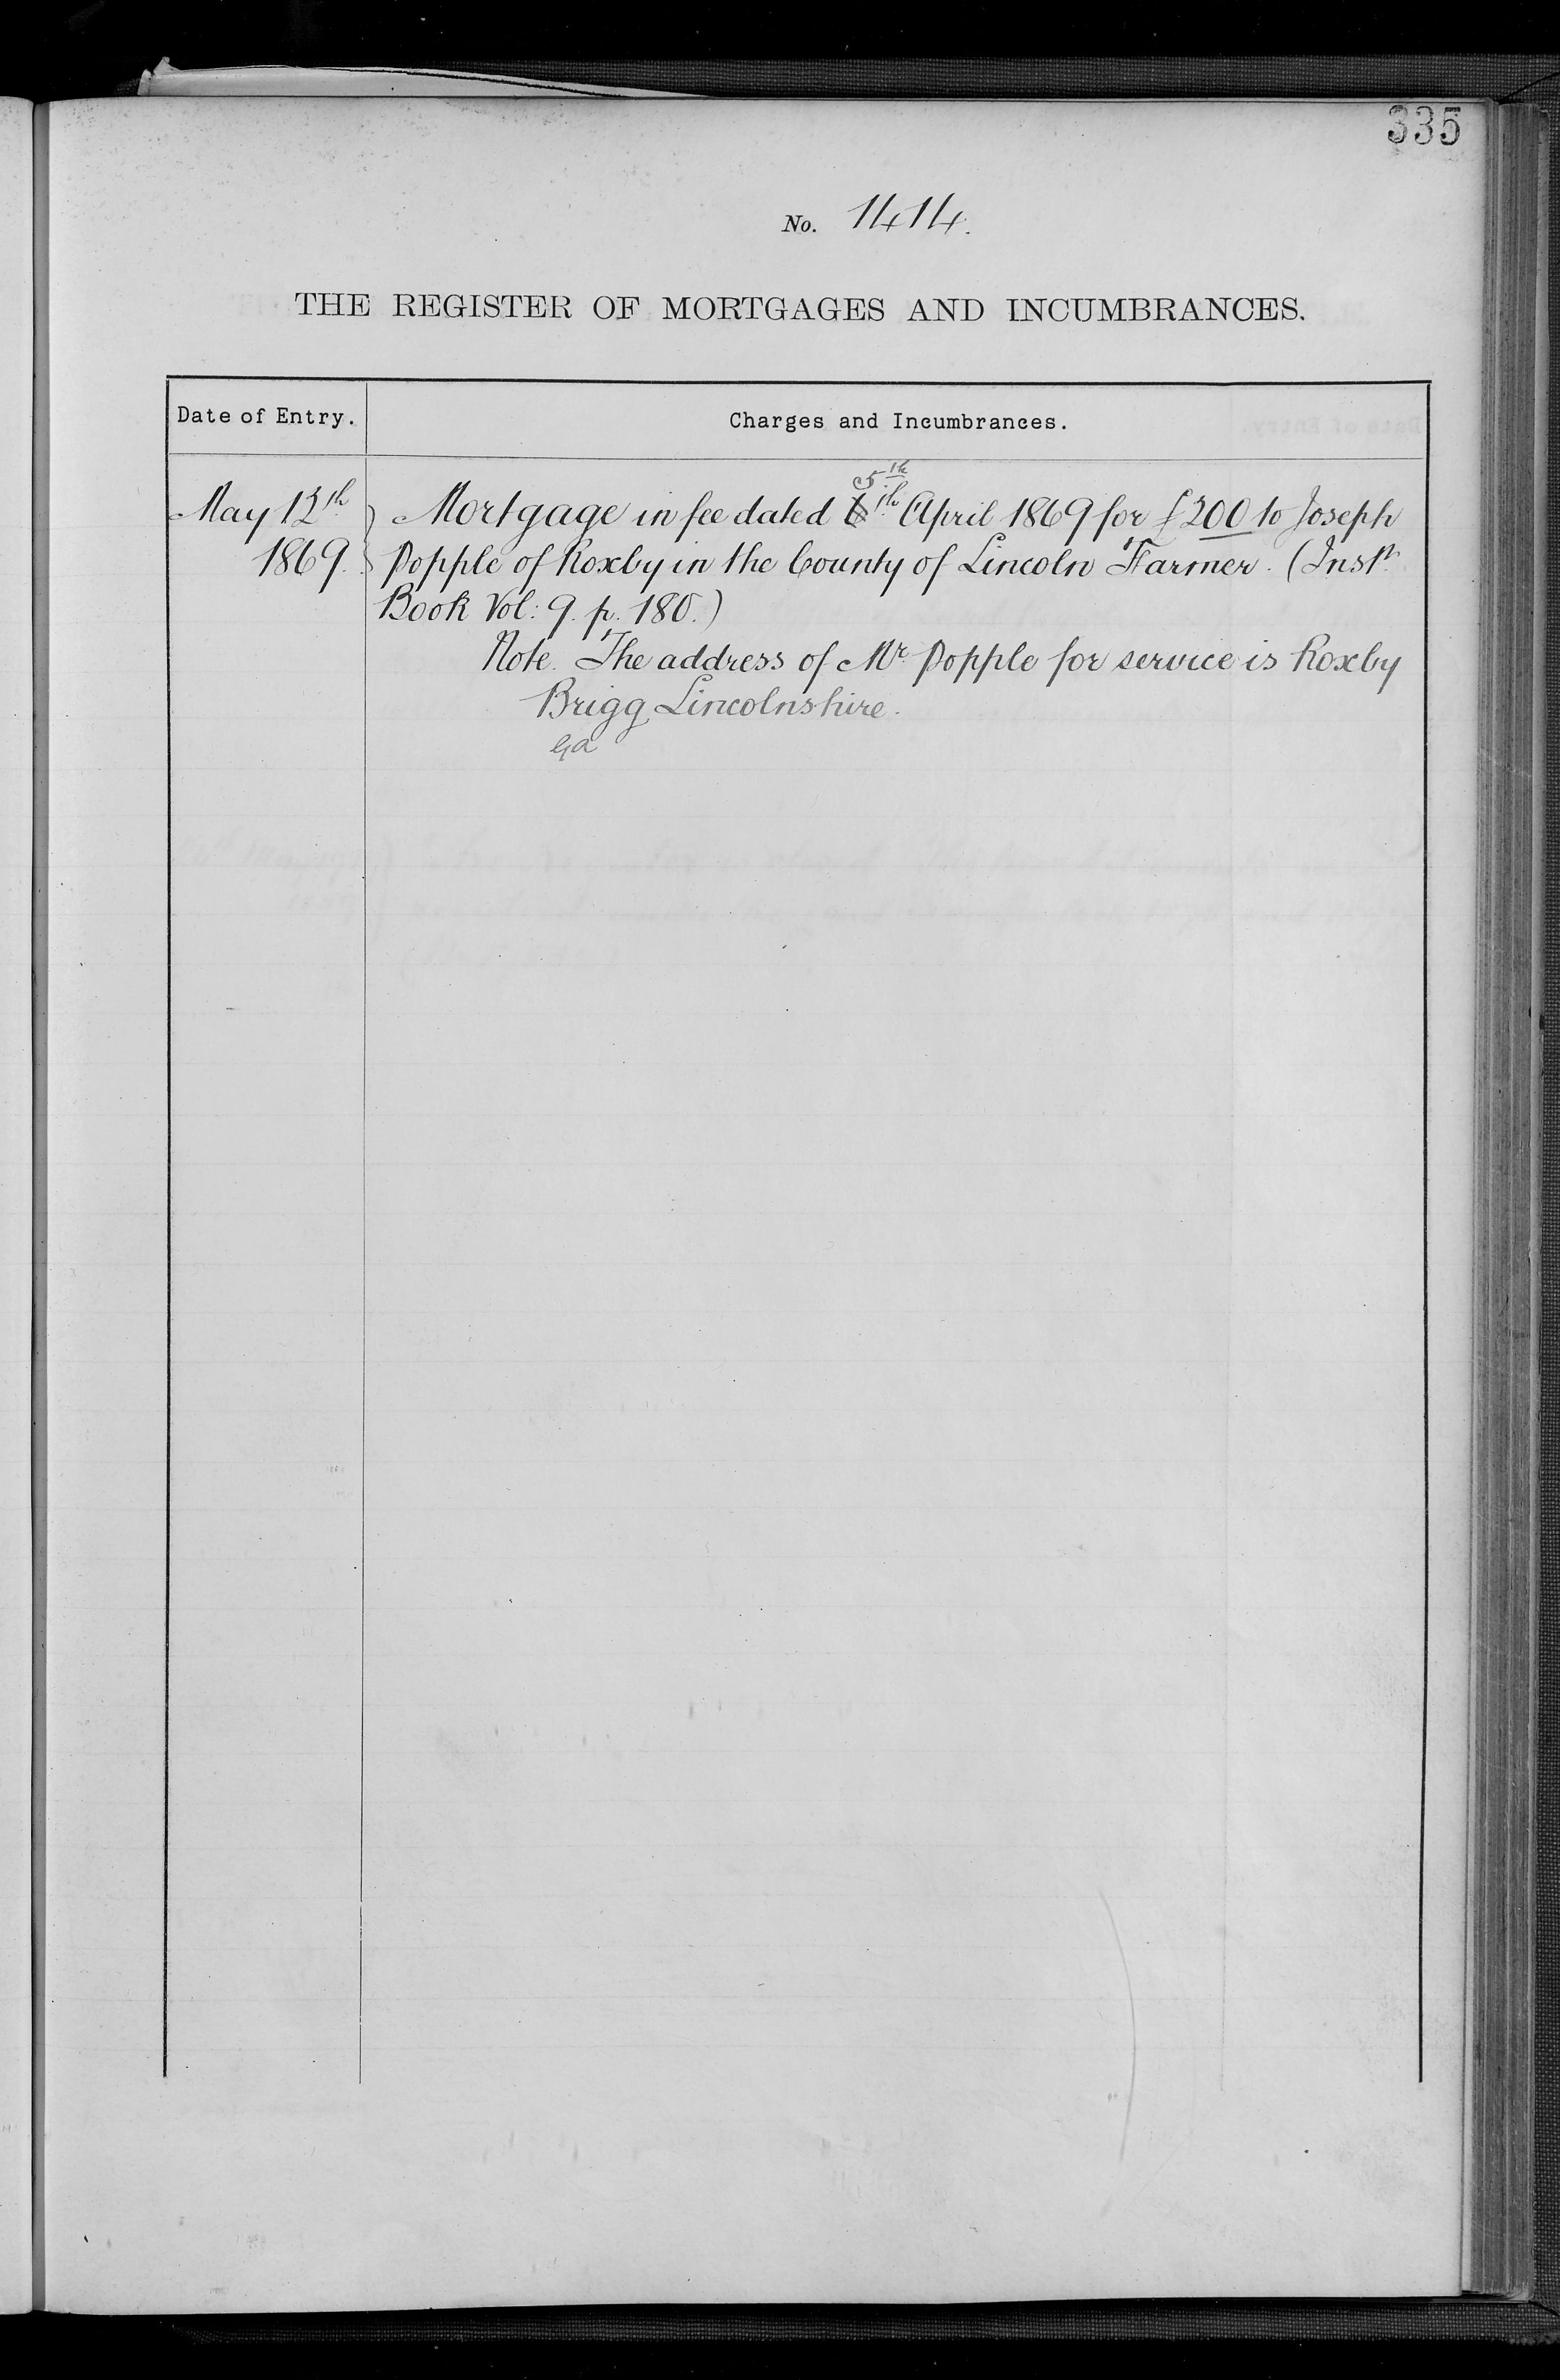 335
No. 1414.
THE REGISTER OF MORTGAGES AND INCUMBRANCES.
Date of Entry.
Charges and Incumbrances.
May 12th
1869.
5th
Mortgage in fee dated 6th April 1869 for £200 to Joseph
Popple of Roxby in the County of Lincoln Farmer. (Inst.
Book Vol: 9. p. 180.)
Note. The address of Mr. Popple for service is Roxby
Brigg Lincolnshire.